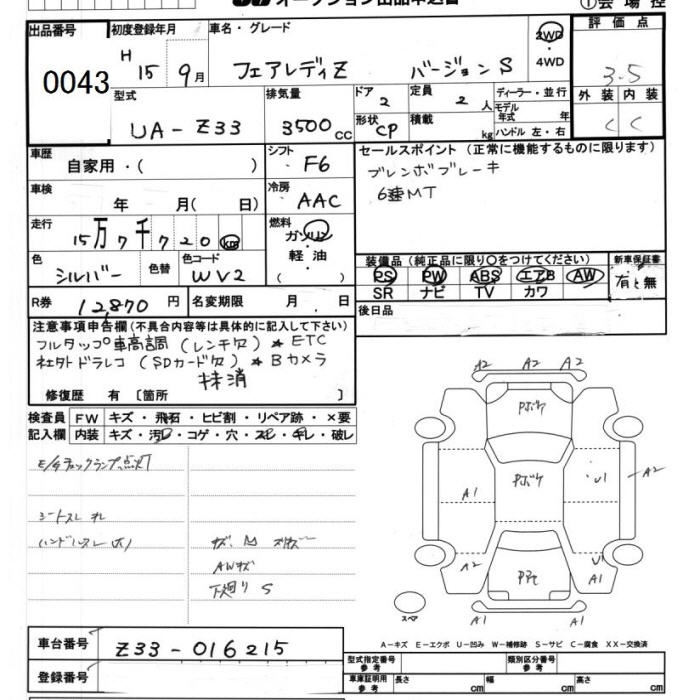 オークション出品申込書
①会場控
出品番号 初度登録年月 車名・グレード 2WD・4WD 評価点
0043 H 15 9月 フェアレディZ バージョンS 3.5
型式 排気量 ドア 2 定員 2人 ディーラー・並行 外装 内装
UA-Z33 3500cc 形状 CP 積載 kg モデル年式 年 ハンドル 左・右 C C
車歴 自家用・( ) シフト F6 セールスポイント(正常に機能するものに限ります)
ブレンボブレーキ
6速MT
車検 年 月( 日) 冷房 AAC
走行 15万7千720km 燃料 ガソリン・軽油 ( )
色 シルバー 色替 色コード WV2
装備品(純正品に限り○をつけてください) 新車保証書
PS PW ABS エアB AW 有・無
SR ナビ TV カワ
R券 12,870円 名変期限 月 日 後日品
注意事項申告欄(不具合内容等は具体的に記入して下さい)
フルタップ車高調(レンチ欠)★ETC
社外ドラレコ(SDカード欠)★Bカメラ
抹消
修復歴 有〔箇所 〕
検査員 FW キズ・飛石・ヒビ割・リペア跡・×要
記入欄 内装 キズ・汚レ・コゲ・穴・スレ・キレ・破レ
E/gチェックランプ点灯
シートスレ
ハンドルスレ
キズ、凹
AWキズ
下廻りS
A2 A2 A2
Pボケ
Pボケ
A1 U1 A2
A2 U1 A1
A1 A1
スペア
A-キズ E-エクボ U-凹み W-補修跡 S-サビ C-腐食 XX-交換済
車台番号 Z33-016215
登録番号
型式指定番号 参考 類別区分番号 参考
車庫証明用 参考 長さ cm 幅 cm 高さ cm